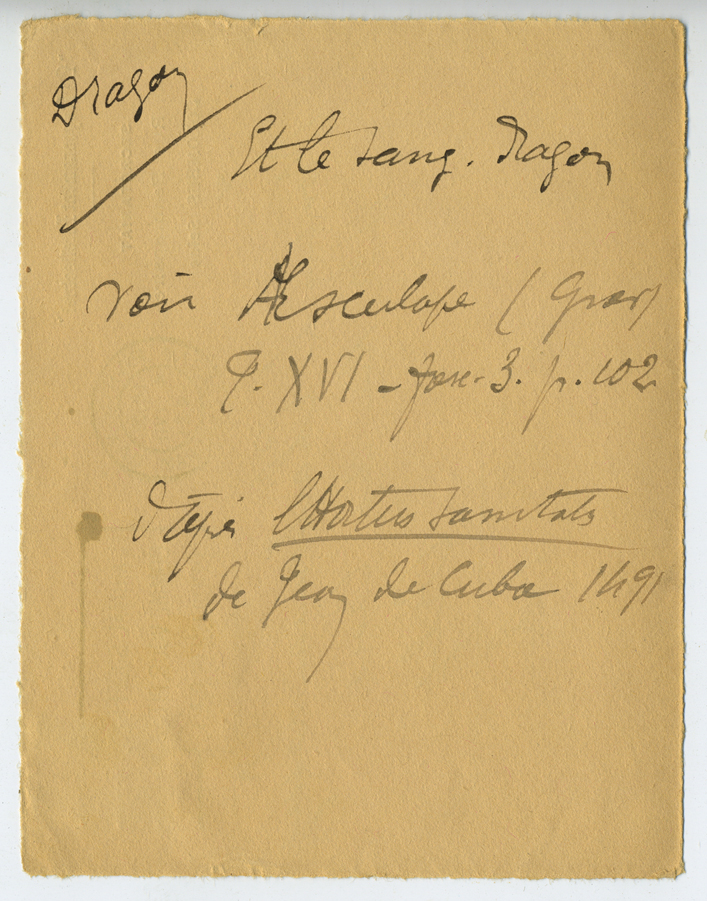 Dragon
Et le sang. dragon
voir Aesculape (Grav)
T. XVI - fasc. 3. p. 102
d'après l'Hortus sanitatis
de Jean de Cuba 1491